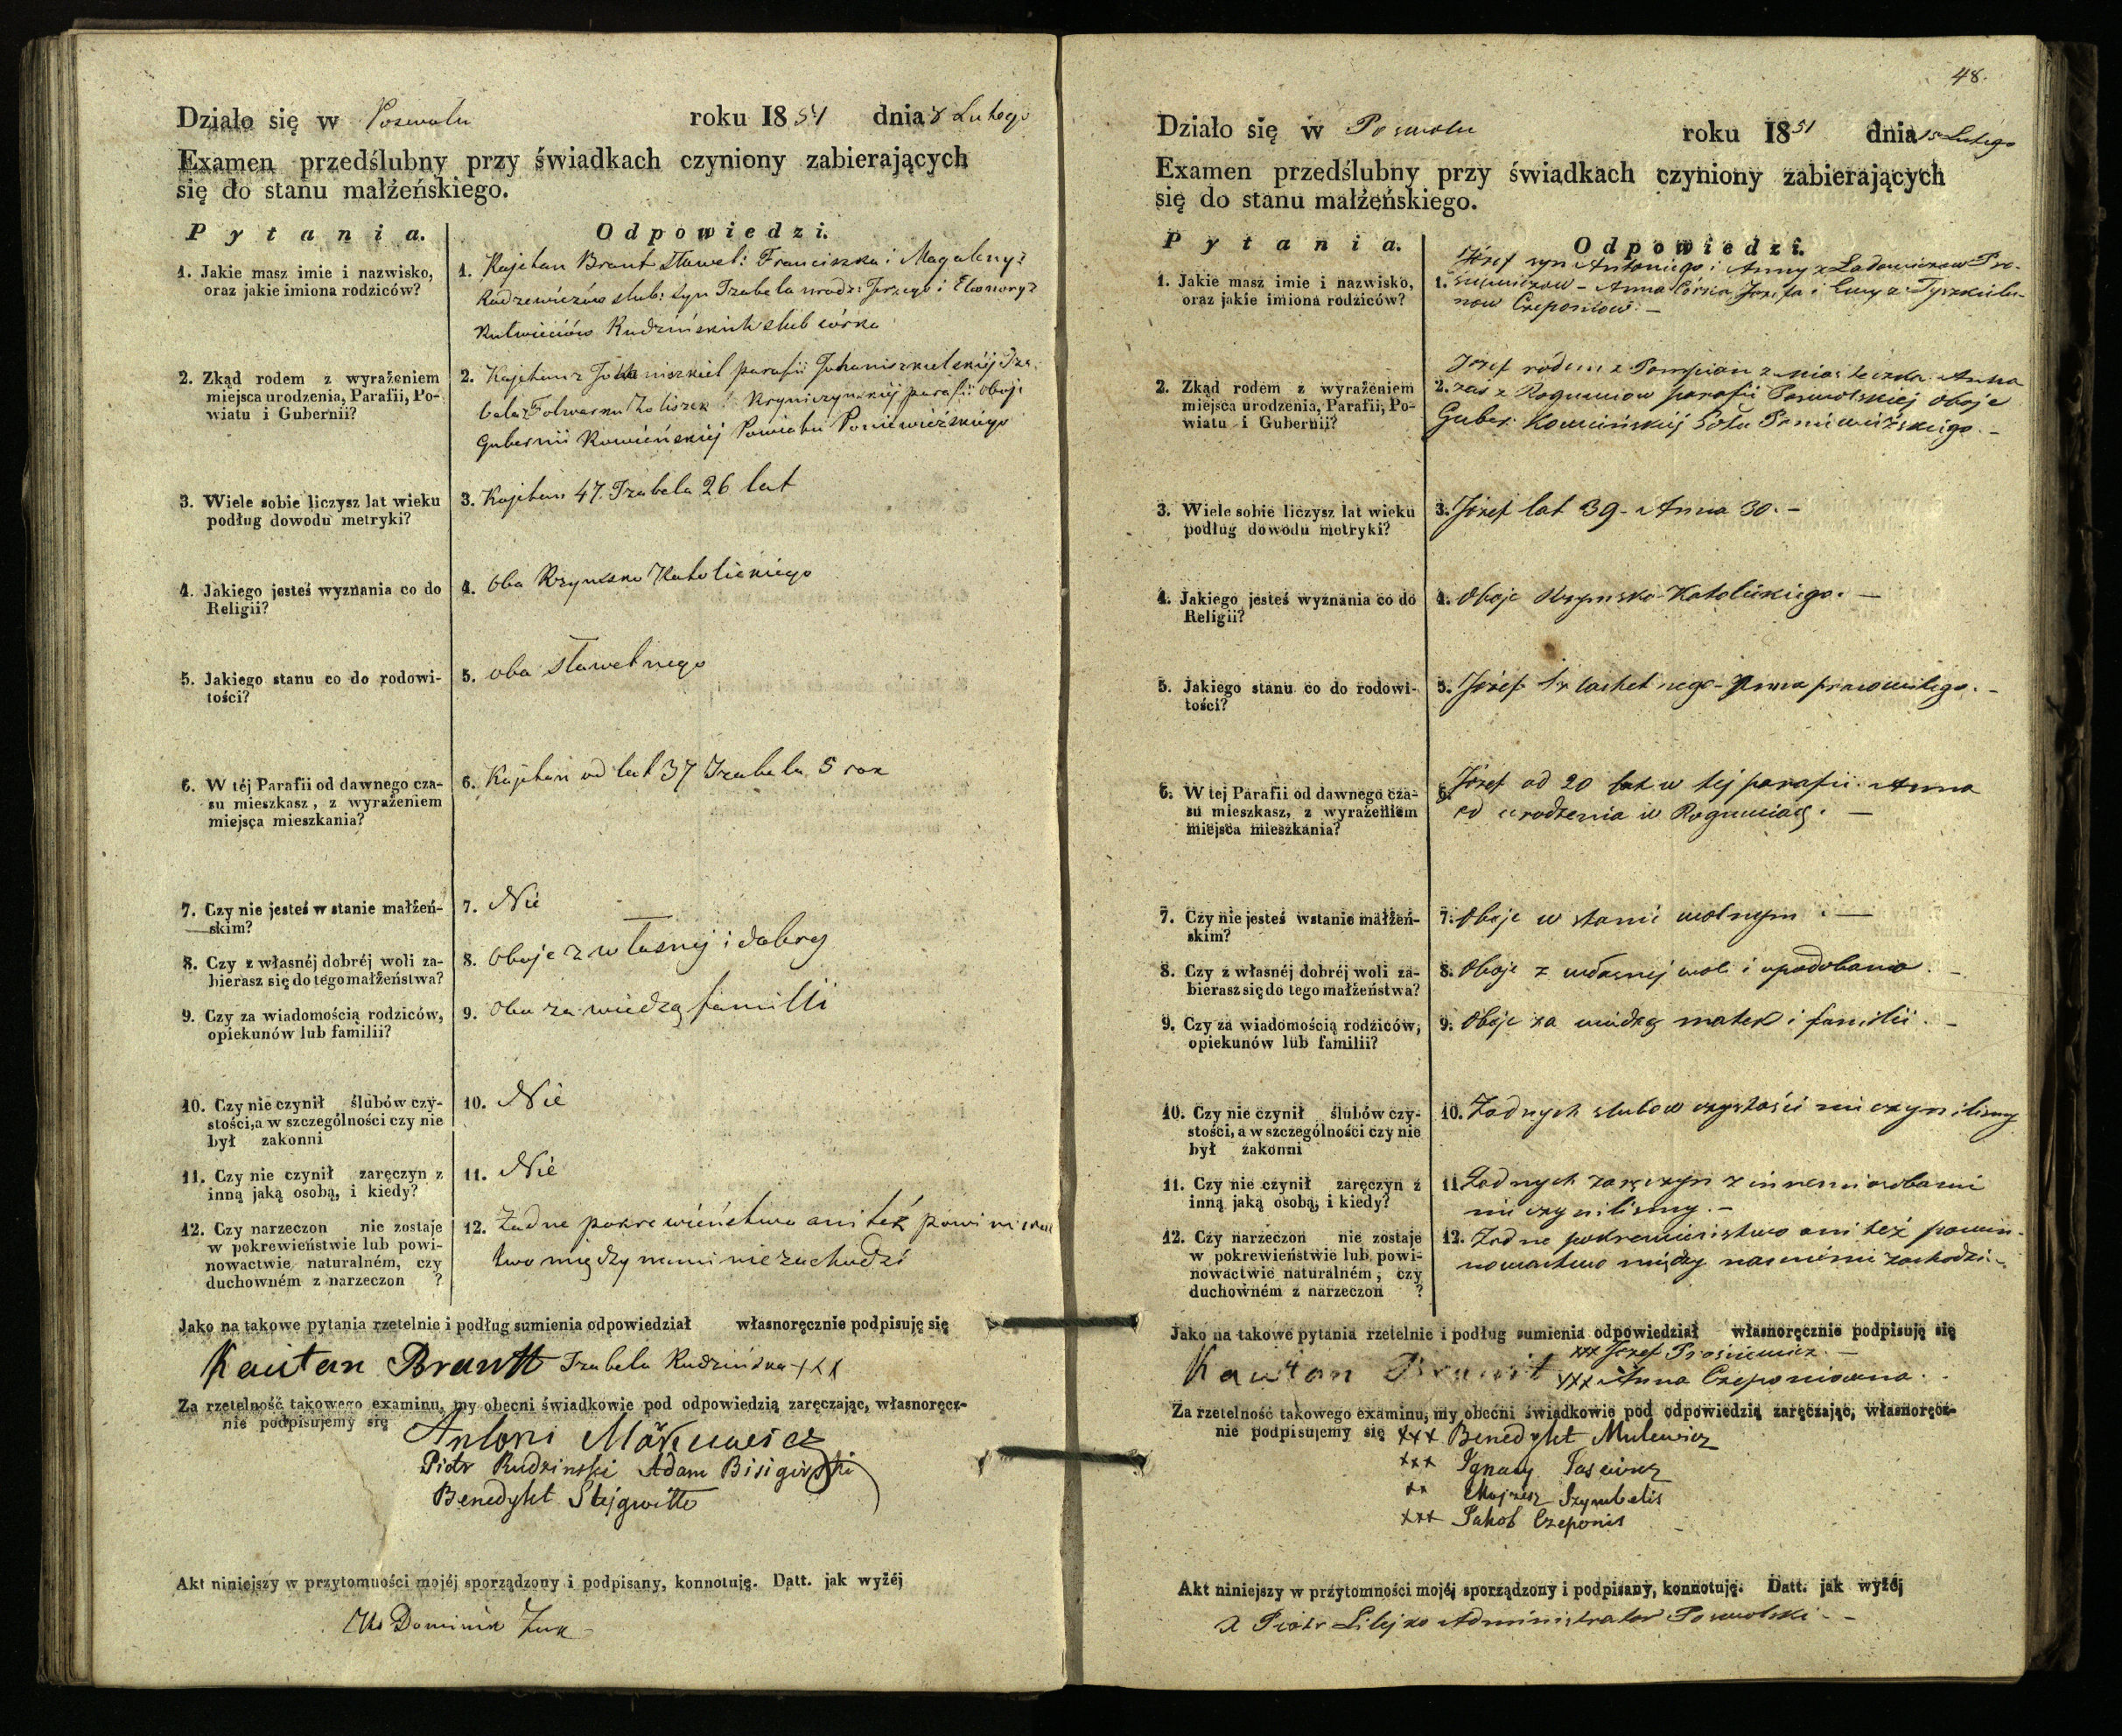 Działo się w Poswolu roku 1851 dnia 8 Lutego
Examen przedślubny przy świadkach czyniony zabierających
się do stanu małżeńskiego.
Pytania. Odpowiedzi.
1. Jakie masz imie i nazwisko,
oraz jakie imiona rodziców?
1. Kajetan Brant Sławet: Franciszka i Magaleny z
Radzewiczów slub: syn Izabela urodz: Jerzego i Eleonory z
Rudzińskich slub córka
2. Zkąd rodem z wyrażeniem
miejsca urodzenia, Parafii, Po-
wiatu i Gubernii?
2. Kajetan z Johaniszkiel parafii Johaniszkielskiéj Iza:
bela z Folwarku parafii oboje
Gubernii Kowieńskiéj Powiatu Poniewieżskiego
3. Wiele sobie liczysz lat wieku
podług dowodu metryki?
3. Kajetan 47. Izabela 26 lat
4. Jakiego jesteś wyznania co do
Religii?
4. Oba Rzymsko Katolickiego
5. Jakiego stanu co do rodowi-
tości?
5. oba sławetnego
6. W téj Parafii od dawnego cza-
su mieszkasz, z wyrażeniem
miejsca mieszkania?
6. Kajetan od lat 37 Izabela 5 rok
7. Czy nie jesteś w stanie małżeń-
skim?
7. Nie
8. Czy z własnéj dobréj woli za-
bierasz się do tego małżeństwa?
8. Oboje z własnej i dobrey
9. Czy za wiadomością rodziców,
opiekunów lub familii?
9. Oba za wiedzą familli
10. Czy nie czynił ślubów czy-
stości, a w szczególności czy nie
był zakonni
10. Nie
11. Czy nie czynił zaręczyn z
inną jaką osobą, i kiedy?
11. Nie
12. Czy narzeczon nie zostaje
w pokrewieństwie lub powi-
nowactwie naturalném, czy
duchowném z narzeczon ?
12. Żadne pokrewieństwo ani też powinowac
two między nami niezachodzi
Jako na takowe pytania rzetelnie i podług sumienia odpowiedział własnoręcznie podpisuję się
Kaitan Brantt Izabela Rudzińska xxx
Za rzetelność takowego examinu, my obecni świadkowie pod odpowiedzią zaręczając, własnoręcz-
nie podpisujemy się
Antoni Markiewicz
Piotr Rudzinski Adam Bisigirski
Benedykt Stejgwitto
Akt niniejszy w przytomności mojéj sporządzony i podpisany, konnotuję. Datt. jak wyżéj
Dominik Żuk
48.
Działo się w Poswolu roku 1851 dnia 15 Lutego
Examen przedślubny przy świadkach czyniony zabierających
się do stanu małżeńskiego.
Pytania. Odpowiedzi.
1. Jakie masz imie i nazwisko,
oraz jakie imiona rodziców?
1. Józef syn Antoniego i Anny z Ladowiczow Pro-
siewiczow - Anna Córka Jozefa i Ewy z
now Czeponiow. -
2. Zkąd rodem z wyrażeniem
miejsca urodzenia, Parafii, Po-
wiatu i Gubernii?
2. Józef rodem z Pompian z miasteczka Anna
zaś z Rogumiow parafii Poswolskiej oboje
Guber. Kowieńskiéj Pttu Poniewieżskiego. -
3. Wiele sobie liczysz lat wieku
podług dowodu metryki?
3. Józef lat 39 - Anna 30. -
4. Jakiego jesteś wyznania co do
Religii?
4. Oboje Rzymsko-Katolickiego. -
5. Jakiego stanu co do rodowi-
tości?
5. Józef szlachetnego - Anna pracowitego. -
6. W tej Parafii od dawnego cza-
su mieszkasz, z wyrażeniem
miejsca mieszkania?
6. Józef od 20 lat w tej parafii. Anna
od urodzenia w Rogumiach. -
7. Czy nie jesteś w stanie małżeń-
skim?
7. Oboje w stanie wolnym. -
8. Czy z własnéj dobréj woli za-
bierasz się do tego małżeństwa?
8. Oboje z własnej woli i upodobania. -
9. Czy za wiadomością rodziców,
opiekunów lub familii?
9. Oboje za wiedzą matek i familii. -
10. Czy nie czynił ślubów czy-
stości, a w szczególności czy nie
był zakonni
10. Żadnych slubow czystości nie czynilismy
11. Czy nie czynił zaręczyn z
inną jaką osobą, i kiedy?
11. Żadnych zaręczyn z innemi osobami
nie czynilismy. -
12. Czy narzeczon nie zostaje
w pokrewieństwie lub powi-
nowactwie naturalném, czy
duchowném z narzeczon ?
12. Żadne pokrewieństwo ani też powin-
nowactwo między nami nie zachodzi. -
Jako na takowe pytania rzetelnie i podług sumienia odpowiedział własnoręcznie podpisuję się
xxx Jozef Prosiewicz. -
xxx Anna Czeponiowna. -
Za rzetelność takowego examinu, my obecni świadkowie pod odpowiedzią zaręczając, własnoręcz-
nie podpisujemy się xxx Benedykt Mulewicz
xxx Ignacy Tascewicz
xx Mojzesz Szymbelis
xxx Jakob Czeponis
Akt niniejszy w przytomności mojéj sporządzony i podpisany, konnotuję. Datt. jak wyżéj
X Piotr Lilejko Administrator Poswolski. -